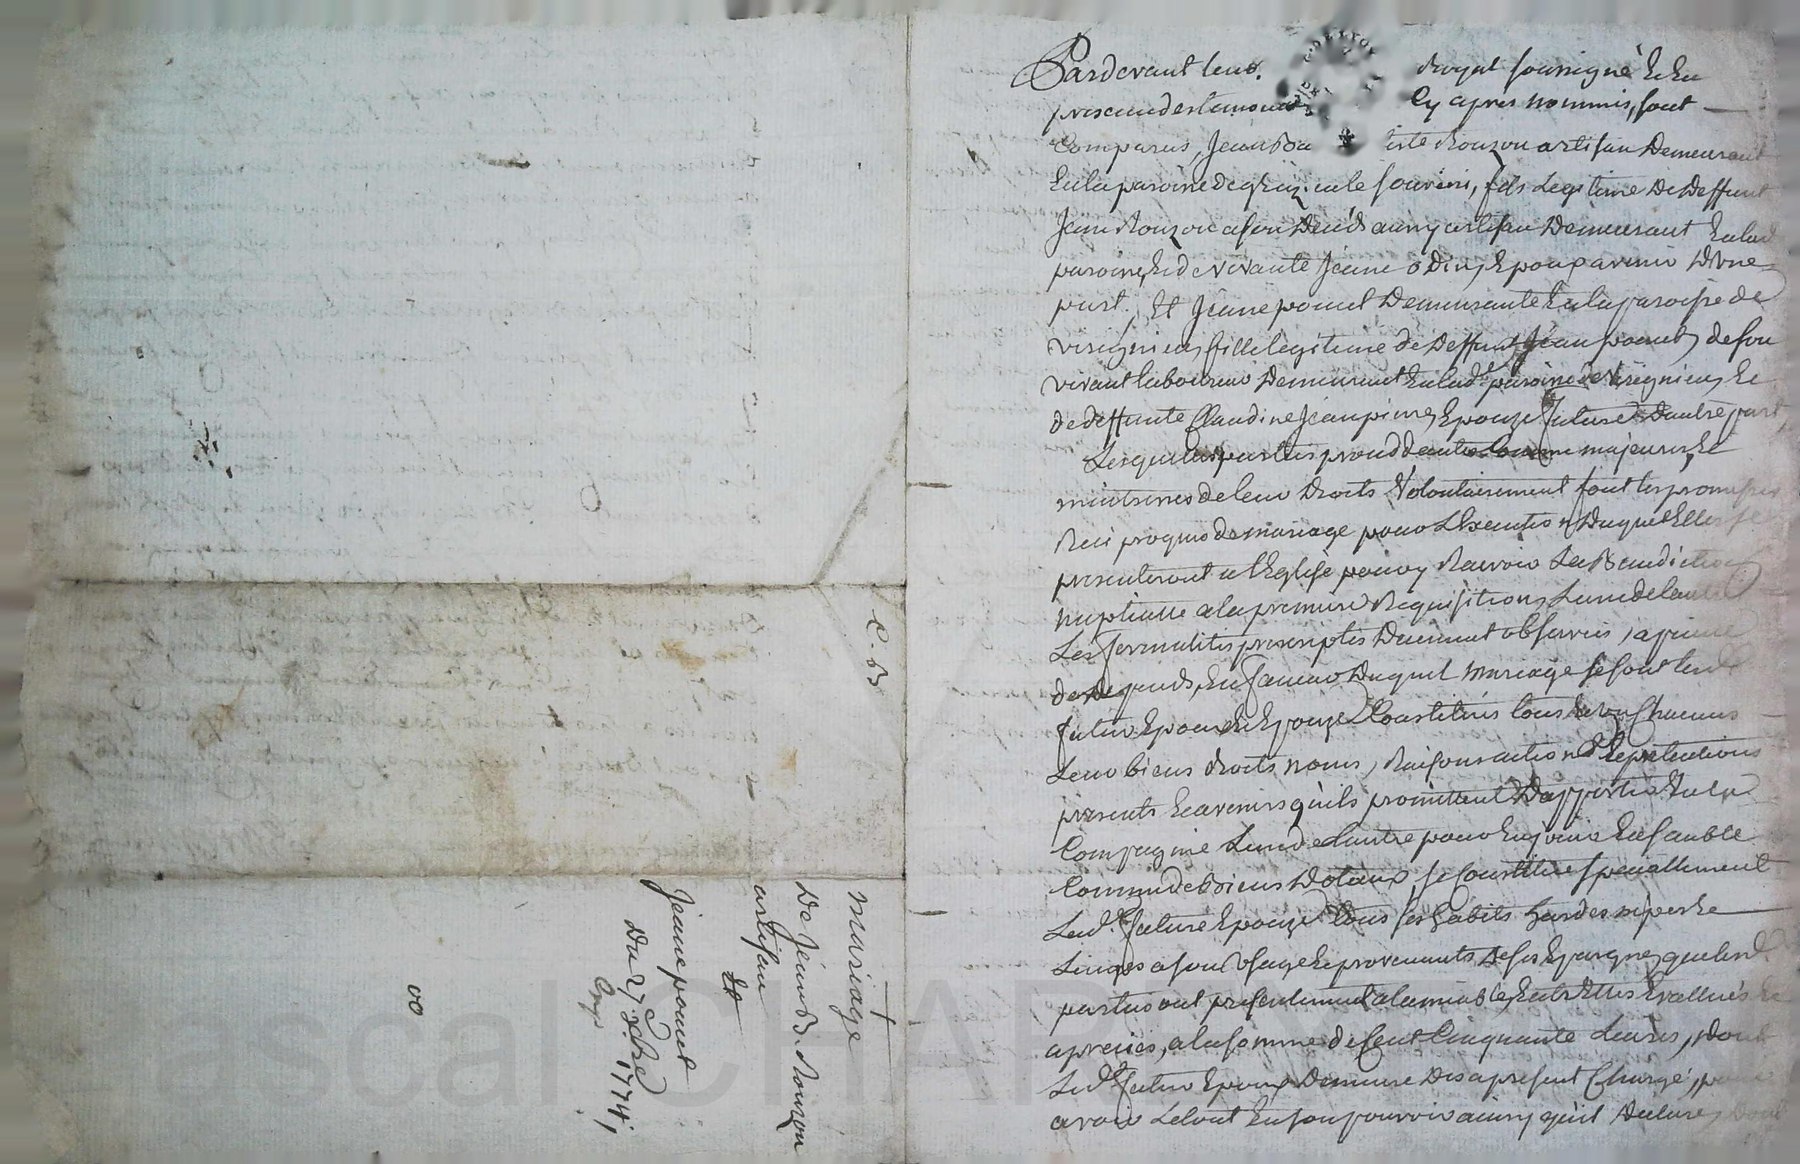 Pardevant le no. royal soussigné Et En
presence des temoins Cy apres nommés, sont
Comparus, Jean Ba tiste Rouzon artisan Demeurant
En la paroisse de fils Legitime De Deffunt
Jean Rouzon a son Deces aussy artisan Demeurant En lad
paroisse, Et de vivante Jeane odin, Epoux avenir D'Vne
part. Et Jeane ponut Demeurante En la paroisse de
virignieu fille legitime de Deffunt Jean ponut, de son
vivant laboureur Demeurant En lad.e paroisse de Virignieu, Et
de deffunte Claudine Jeanpierre, Epouze future D'autre part,
Lesquelles parties majeures, Et
maitresses de leur Droits Volontairement font les promesses
Reciproques de mariage pour L'Execution Duquel Elles se
presenteront a l'Eglise pour y Recevoir La Benediction
nuptialle a la premiere Requisition, L'une de l'autre
Les formalités prescriptes Duement observées, a peine
de Depends, En faveur Duquel Mariage se sont les d
futur Epoux Et Epouze Constitués tous Et Un Chacuns
Leur biens droits noms, Raisons actions Et Repetitions
presents Et avenirs qu'ils promettent D'apporter En la
Compagnie L'un de L'autre pour En jouir Ensemble
Comme de Biens Dotaux, se Constitue speciallement
Lad.e future Epouze tous ses habits hardes nipes Et
Linges a son Usage Et provenants De ses Epargnes, que les d.
parties ont presentement a lamiable Entr'Elles Evallués Et
apreciés, a la somme de Cent Cinquante Livres, Dont
Led. futur Epoux Demeure Des a present Chargé, pour
avoir Le tout En son pouvoir ainsy qu'il Declare, Dont
C. B
mariage
De Jean B. Rouzon
artisan
Et
Jeane ponut
Du 27 1774,